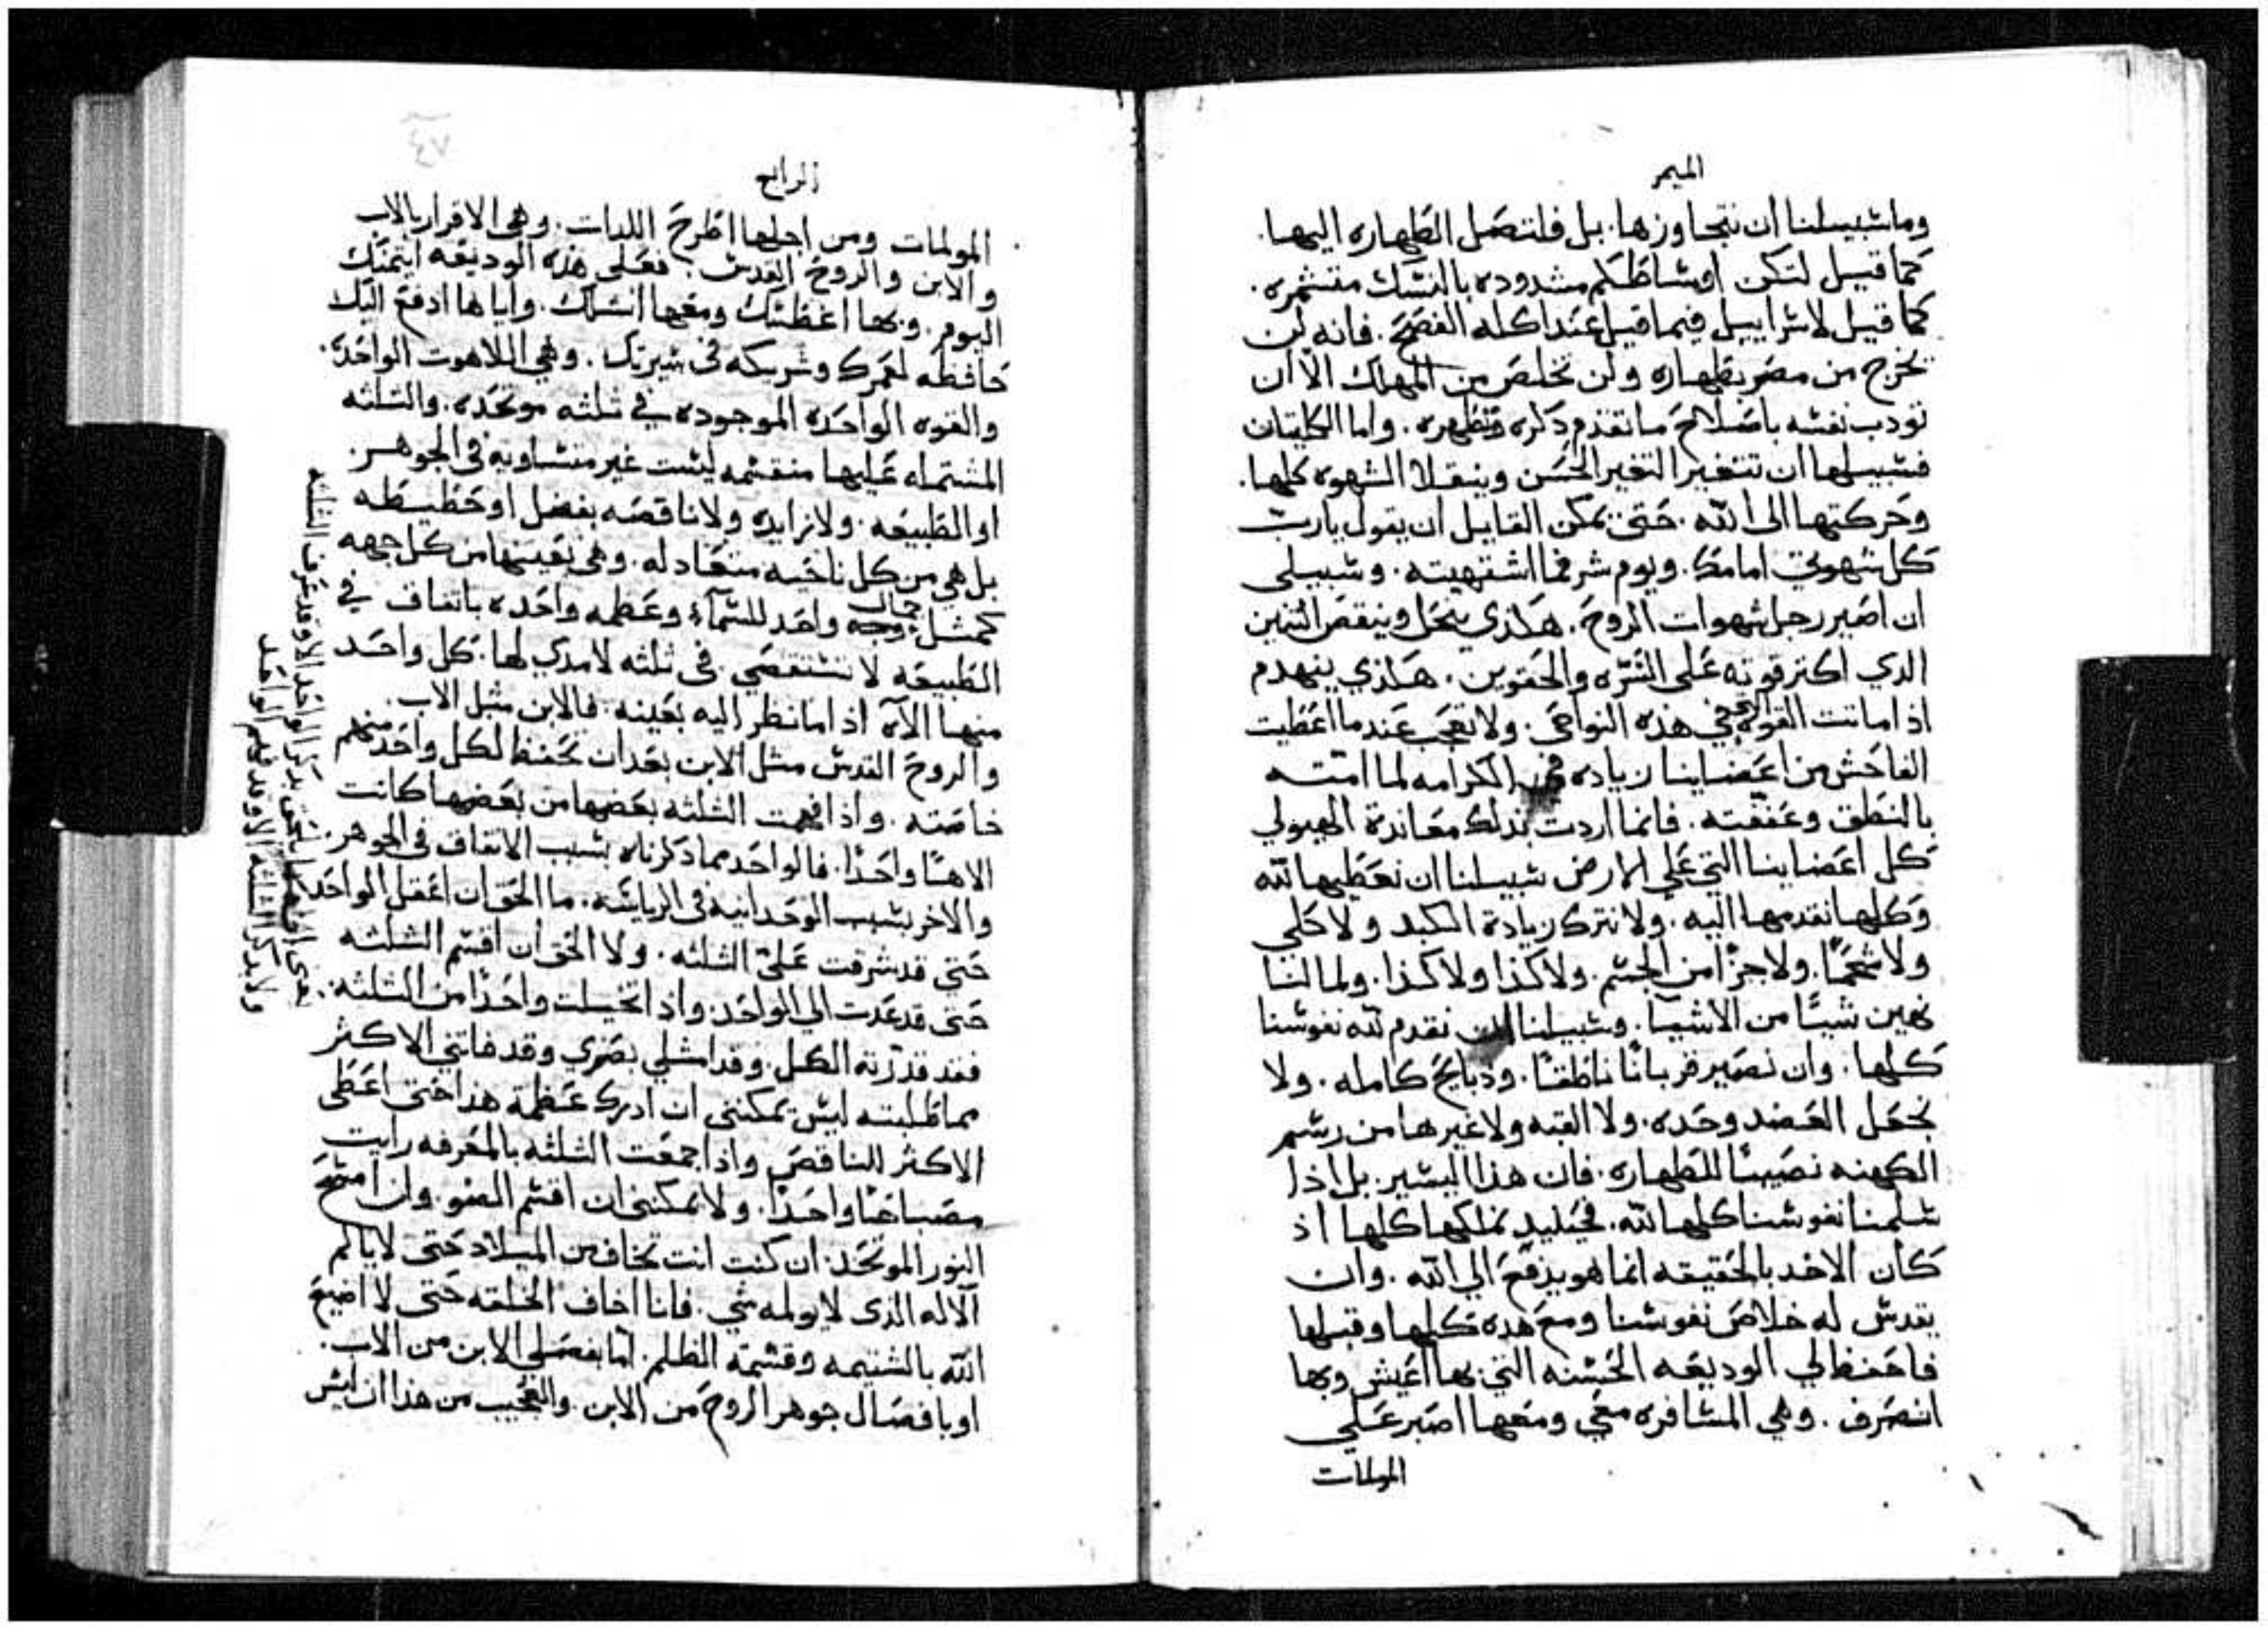 الميمر
وما سبيلنا ان نتجاوزها. بل فلتصل الطهاره اليها.
كما قيل لتكن اوساطكم مشدوده بالنسك متشمره.
كما قيل لاسراييل فيما قيل عند اكله الفصح. فانه لن
تخرج من مصر بطهاره ولن تخلص من المهلك الا ان
تودب نفسه باصلاح ما تقدم ذكره وتطهره. واما الكليتان
فسبيلها ان تتغير التغير الحسن وينقلا الشهوه كلها.
وحركتها الى الله. حتى يمكن القايل ان يقول يا رب
كل شهوتي امامك. ويوم شر فما اشتهيته. وسبيلي
ان اصير رجل شهوات الروح. هكذي ينحل وينقص التنين
الذي اكتر قوته على السره والحقوين. هكذي ينهدم
اذا ماتت القوه في هذه النواحي. ولا تعجب عندما اعطيت
الفاحش من اعضاينا زياده من الكرامه لما امته
بالنطق وعففته. فانما اردت بذلك معاندة الهيولي
كل اعضاينا التي على الارض سبيلنا ان نعطيها لله
وكلها نقدمها اليه. ولا نترك زيادة الكبد ولا كلي
ولا شحمًا. ولا جزًا من الجسم. ولا كذا ولا كذا. ولما لنا
نهين شيًا من الاشيا. وسبيلنا ان نقدم لله نفوسنا
كلها. وان نصير قربانًا ناطقًا. ودبايح كامله. ولا
نجعل العضد وحده. ولا القبه ولا غيرها من رسم
الكهنه نصيبًا للطهاره. فان هذا اليسير. بل اذا
سلمنا نفوسنا كلها لله. فحينيد نملكها كلها اذ
كان الاخد بالحقيقه انما هو يدفع الي الله. وان
يقدس له خلاص نفوسنا ومع هذه كلها وقبلها
فاحفظ لي الوديعه الحسنه التي بها اعيش وبها
انصرف. وهي المسافره معي ومعها اصبر على
المولمات
الرابع
المولمات ومن اجلها اطرح اللدات. وهي الاقرار بالاب
والابن والروح القدس. فعلى هذه الوديعه ايتمنتك
اليوم. وبها اغطسك ومعها انشلك. واياها ادفع اليك
حافظه لعمرك وشريكه في سيرتك. وهي اللاهوت الواحده.
والقوه الواحده الموجوده في ثلثه موتحده. والثلثه
المشتمله عليها منقسمه ليست غير متساويه في الجوهر.
او الطبيعه. ولا زايده ولا ناقصه بفضل او حطيطه
بل هي من كل ناحيه متعادله. وهي بعينها من كل جهه
كمثل جمال وجه واحد للسمآء وعظمه واحده باتفاق في
الطبيعه لا تستقصي. في ثلثه لا مدي لها. كل واحد
منها الآه اذا ما نظر اليه بعينه. فالابن مثل الاب.
والروح القدس مثل الابن بعد ان تحفظ لكل واحد منهم
خاصته. واذا فهمت الثلثه بعضها من بعضها كانت
الاهًا واحدًا. فالواحد مما ذكرناه بسبب الاتفاق في الجوهر.
والاخر بسبب الوحدانيه في الرياسه. ما الحق ان اعقل الواحد
حتى قد شرقت علىّ الثلثه. ولا الحق ان اقسم الثلثه
حتى قد عدت الي الواحد. واذا تخيلت واحدًا من الثلثه.
فقد قدرته الكل. وقد امتلي بصري وقد فاتني الاكثر
مما طلبته ليس يمكنني ان ادرك عظمة هذا حتى اعطي
الاكثر للناقص واذا جمعت الثلثه بالمعرفه رايت
مصباحًا واحدًا. ولا يمكنني ان اقسم الضو. وان امسح
النور الموتحد. ان كنت انت تخاف من الميلاد حتى لا يالم
الاله الذي لا يولمه شي. فانا اخاف الخلقه حتى لا اضيع
الله بالشتيمه وقسمة الظلم. اما بفصلي الابن من الاب.
او بانفصال جوهر الروح من الابن. والعجيب من هذا ان ليس
يعني اني ما الحق بذكر الواحد الا وقد عرف الثلثه
ولا بذكر الثلثه الا وقد فهم الواحد